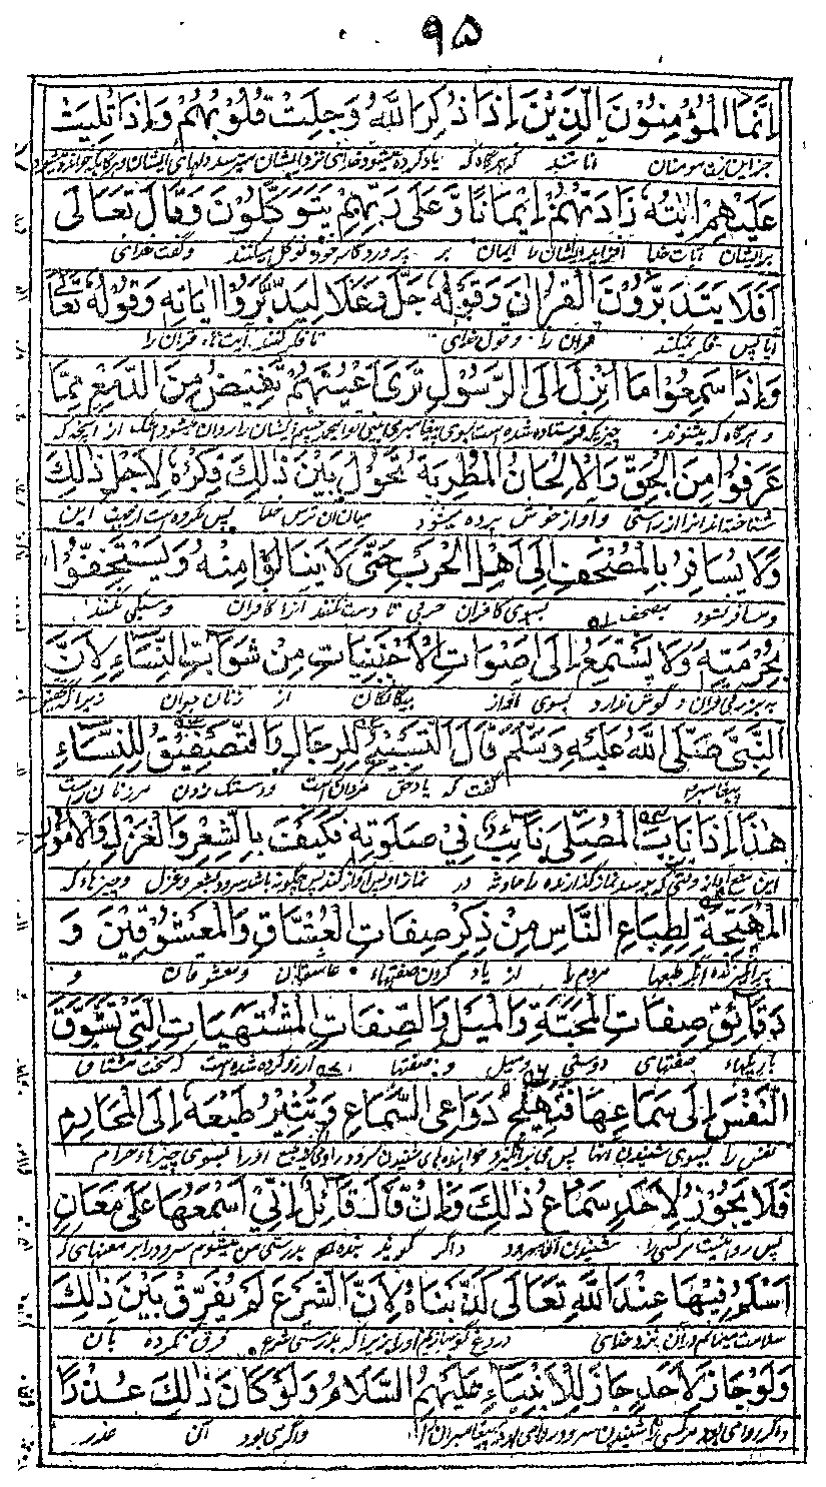 ۹۵
اِنَّمَا الْمُؤْمِنُوْنَ الَّذِيْنَ اِذَا ذُكِرَ اللّٰهُ وَجِلَتْ قُلُوْبُهُمْ وَاِذَا تُلِيَتْ
جز این نیست مومنان آنانند که هرگاه که یاد کرده میشود خدای
عَلَيْهِمْ اٰيٰتُهٗ زَادَتْهُمْ اِيْمَانًا وَّعَلٰى رَبِّهِمْ يَتَوَكَّلُوْنَ وَقَالَ تَعَالٰى
برایشان آیات خدا افزاید ایشان را ایمان بر پروردگار خود توکل میکنند وگفت خدای
اَفَلَا يَتَدَبَّرُوْنَ الْقُرْاٰنَ وَقَوْلُهٗ جَلَّ وَعَلَا لِيَدَّبَّرُوْا اٰيَاتِهٖ وَقَوْلُهٗ تَعَالٰى
آیا پس فکر نمیکنند قرآن را وقول خدای تا فکر کنند آیت های قرآن را
وَاِذَا سَمِعُوْا مَا اُنْزِلَ اِلَى الرَّسُوْلِ تَرٰى اَعْيُنَهُمْ تَفِيْضُ مِنَ الدَّمْعِ مِمَّا
و هرگاه که بشنوند چیزیکه فرستاده شده است بسوی پیغامبر
عَرَفُوْا مِنَ الْحَقِّ وَالْاِلْحَانُ الْمُطْرِبَةُ تَحُوْلُ بَيْنَ ذٰلِكَ فَكُرِهَ لِاَجْلِ ذٰلِكَ
شناخته اند آنرا از راستی وآواز خوش پرده میشود میان آن ترس خدا پس مکروه است از جهت این
وَلَا يُسَافِرُ بِالْمُصْحَفِ اِلٰى اَهْلِ الْحَرْبِ حَتّٰى لَا يَنَالُوْا مِنْهُ وَيَسْتَخِفُّوْا
ومسافر نشود بمصحف بسوی کافران حربی تا دست نکنند آنرا کافران وسبکی نکنند
بِحُرْمَتِهٖ وَلَا يَسْتَمِعُ اِلٰى اَصْوَاتِ الْاَجْنَبِيَّاتِ مِنْ شَوَابِّ النِّسَاءِ لِاَنَّ
به بزرگی قرآن و گوش ندارد بسوی آواز بیگانگان از زنان جوان زیرا که
النَّبِيَّ صَلَّى اللّٰهُ عَلَيْهِ وَسَلَّمَ قَالَ التَّسْبِيْحُ لِلرِّجَالِ وَالتَّصْفِيْقُ لِلنِّسَاءِ
پیغامبر گفت که یاد حق مردان راست ودستک زدن مر زنان راست
هٰذَا اِذَا نَابَ الْمُصَلِّيَ نَائِبٌ فِيْ صَلٰوتِهٖ فَكَيْفَ بِالشِّعْرِ وَالْغَزَلِ وَالْاُمُوْرِ
نماز گذارنده را حادثه در نماز
الْمُهَيِّجَةِ لِطِبَاعِ النَّاسِ مِنْ ذِكْرِ صِفَاتِ الْعُشَّاقِ وَالْمَعْشُوْقِيْنَ وَ
برانگیزنده اند طبعها مردم را از یاد کردن صفتهاء عاشقان ومعشوقان و
دَقَائِقِ صِفَاتِ الْمَحَبَّةِ وَالْمَيْلِ وَالصِّفَاتِ الْمُشْتَهَيَاتِ الَّتِيْ تُشَوِّقُ
باریکهاء صفتهای دوستی ومیل وصفتها آرزو کرده شده است که سخت مشتاق
النَّفْسَ اِلٰى سَمَاعِهَا فَتُهَيِّجُ دَوَاعِيَ السَّمَاعِ وَتُثِيْرُ طَبْعَهٗ اِلَى الْمَحَارِمِ
نفس را بسوی شنیدن آنها پس بسوی چیزهاء حرام
فَلَا يَجُوْزُ لِاَحَدٍ سَمَاعُ ذٰلِكَ وَاِنْ قَالَ قَائِلٌ اِنِّيْ اَسْمَعُهَا عَلٰى مَعَانٍ
پس روا نیست مر کسی را شنیدن آن سرود واگر گوید بدرستی من میشنوم سرود را بر معنهای که
اَسْلَمُ فِيْهَا عِنْدَ اللّٰهِ تَعَالٰى كَذَّبْنَاهُ لِاَنَّ الشَّرْعَ لَمْ يُفَرِّقْ بَيْنَ ذٰلِكَ
سلامت میمانم در آن نزد خدای دروغ گو سازیم او را زیرا که بدرستی شرع فرق نکرده
وَلَوْ جَازَ لِاَحَدٍ جَازَ لِلْاَنْبِيَاءِ عَلَيْهِمُ السَّلَامُ وَلَوْ كَانَ ذٰلِكَ عُذْرًا
واگر روا می بود مر کسی را شنیدن سرود روا می بود پیغامبران را واگر می بود آن عذر